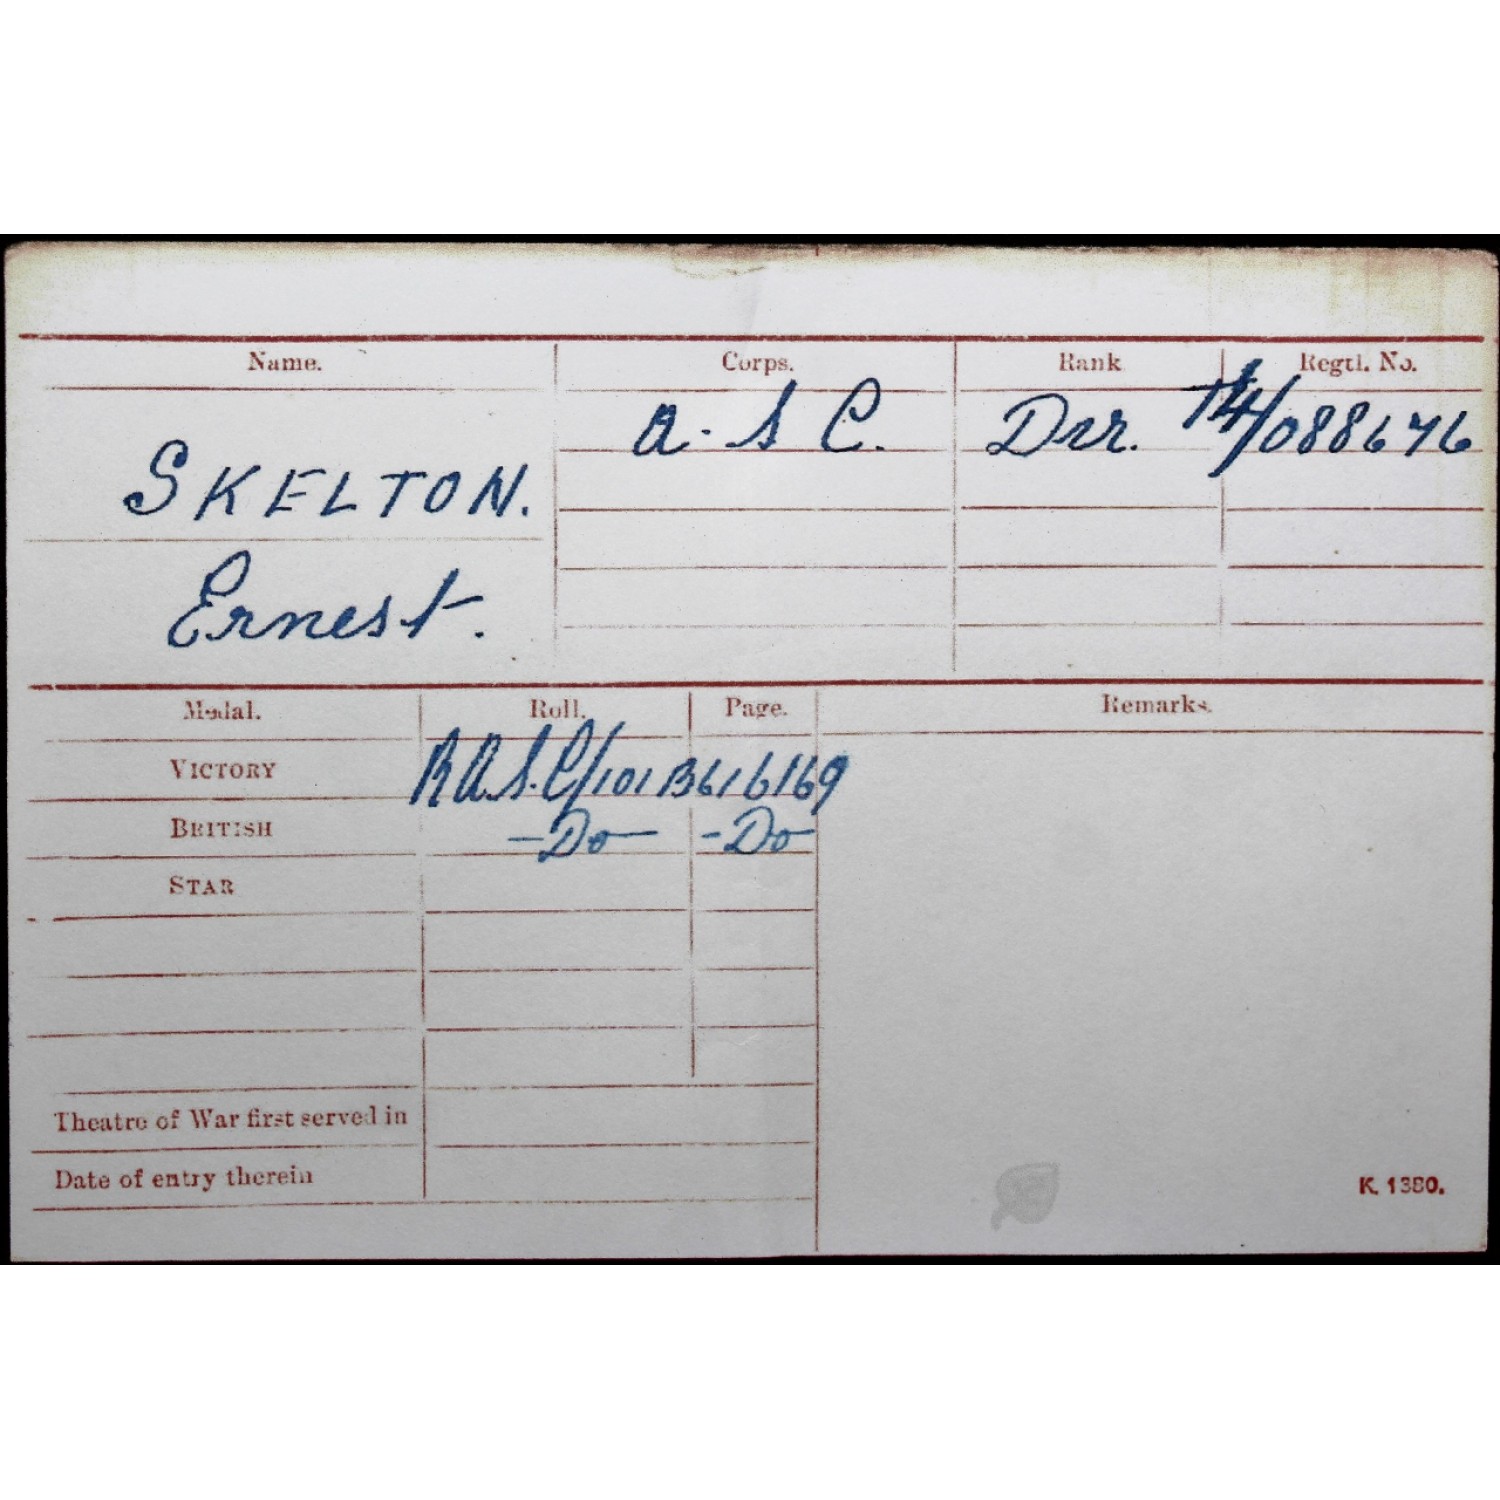 Name. Corps. Rank Regtl. No.
A. S C. Dvr. T4/088676
SKELTON.
Ernest.
Medal. Roll. Page. Remarks.
VICTORY R A.S.C/101B61 6169
BRITISH -Do- -Do-
STAR
Theatre of War first served in
Date of entry therein
K. 1380.